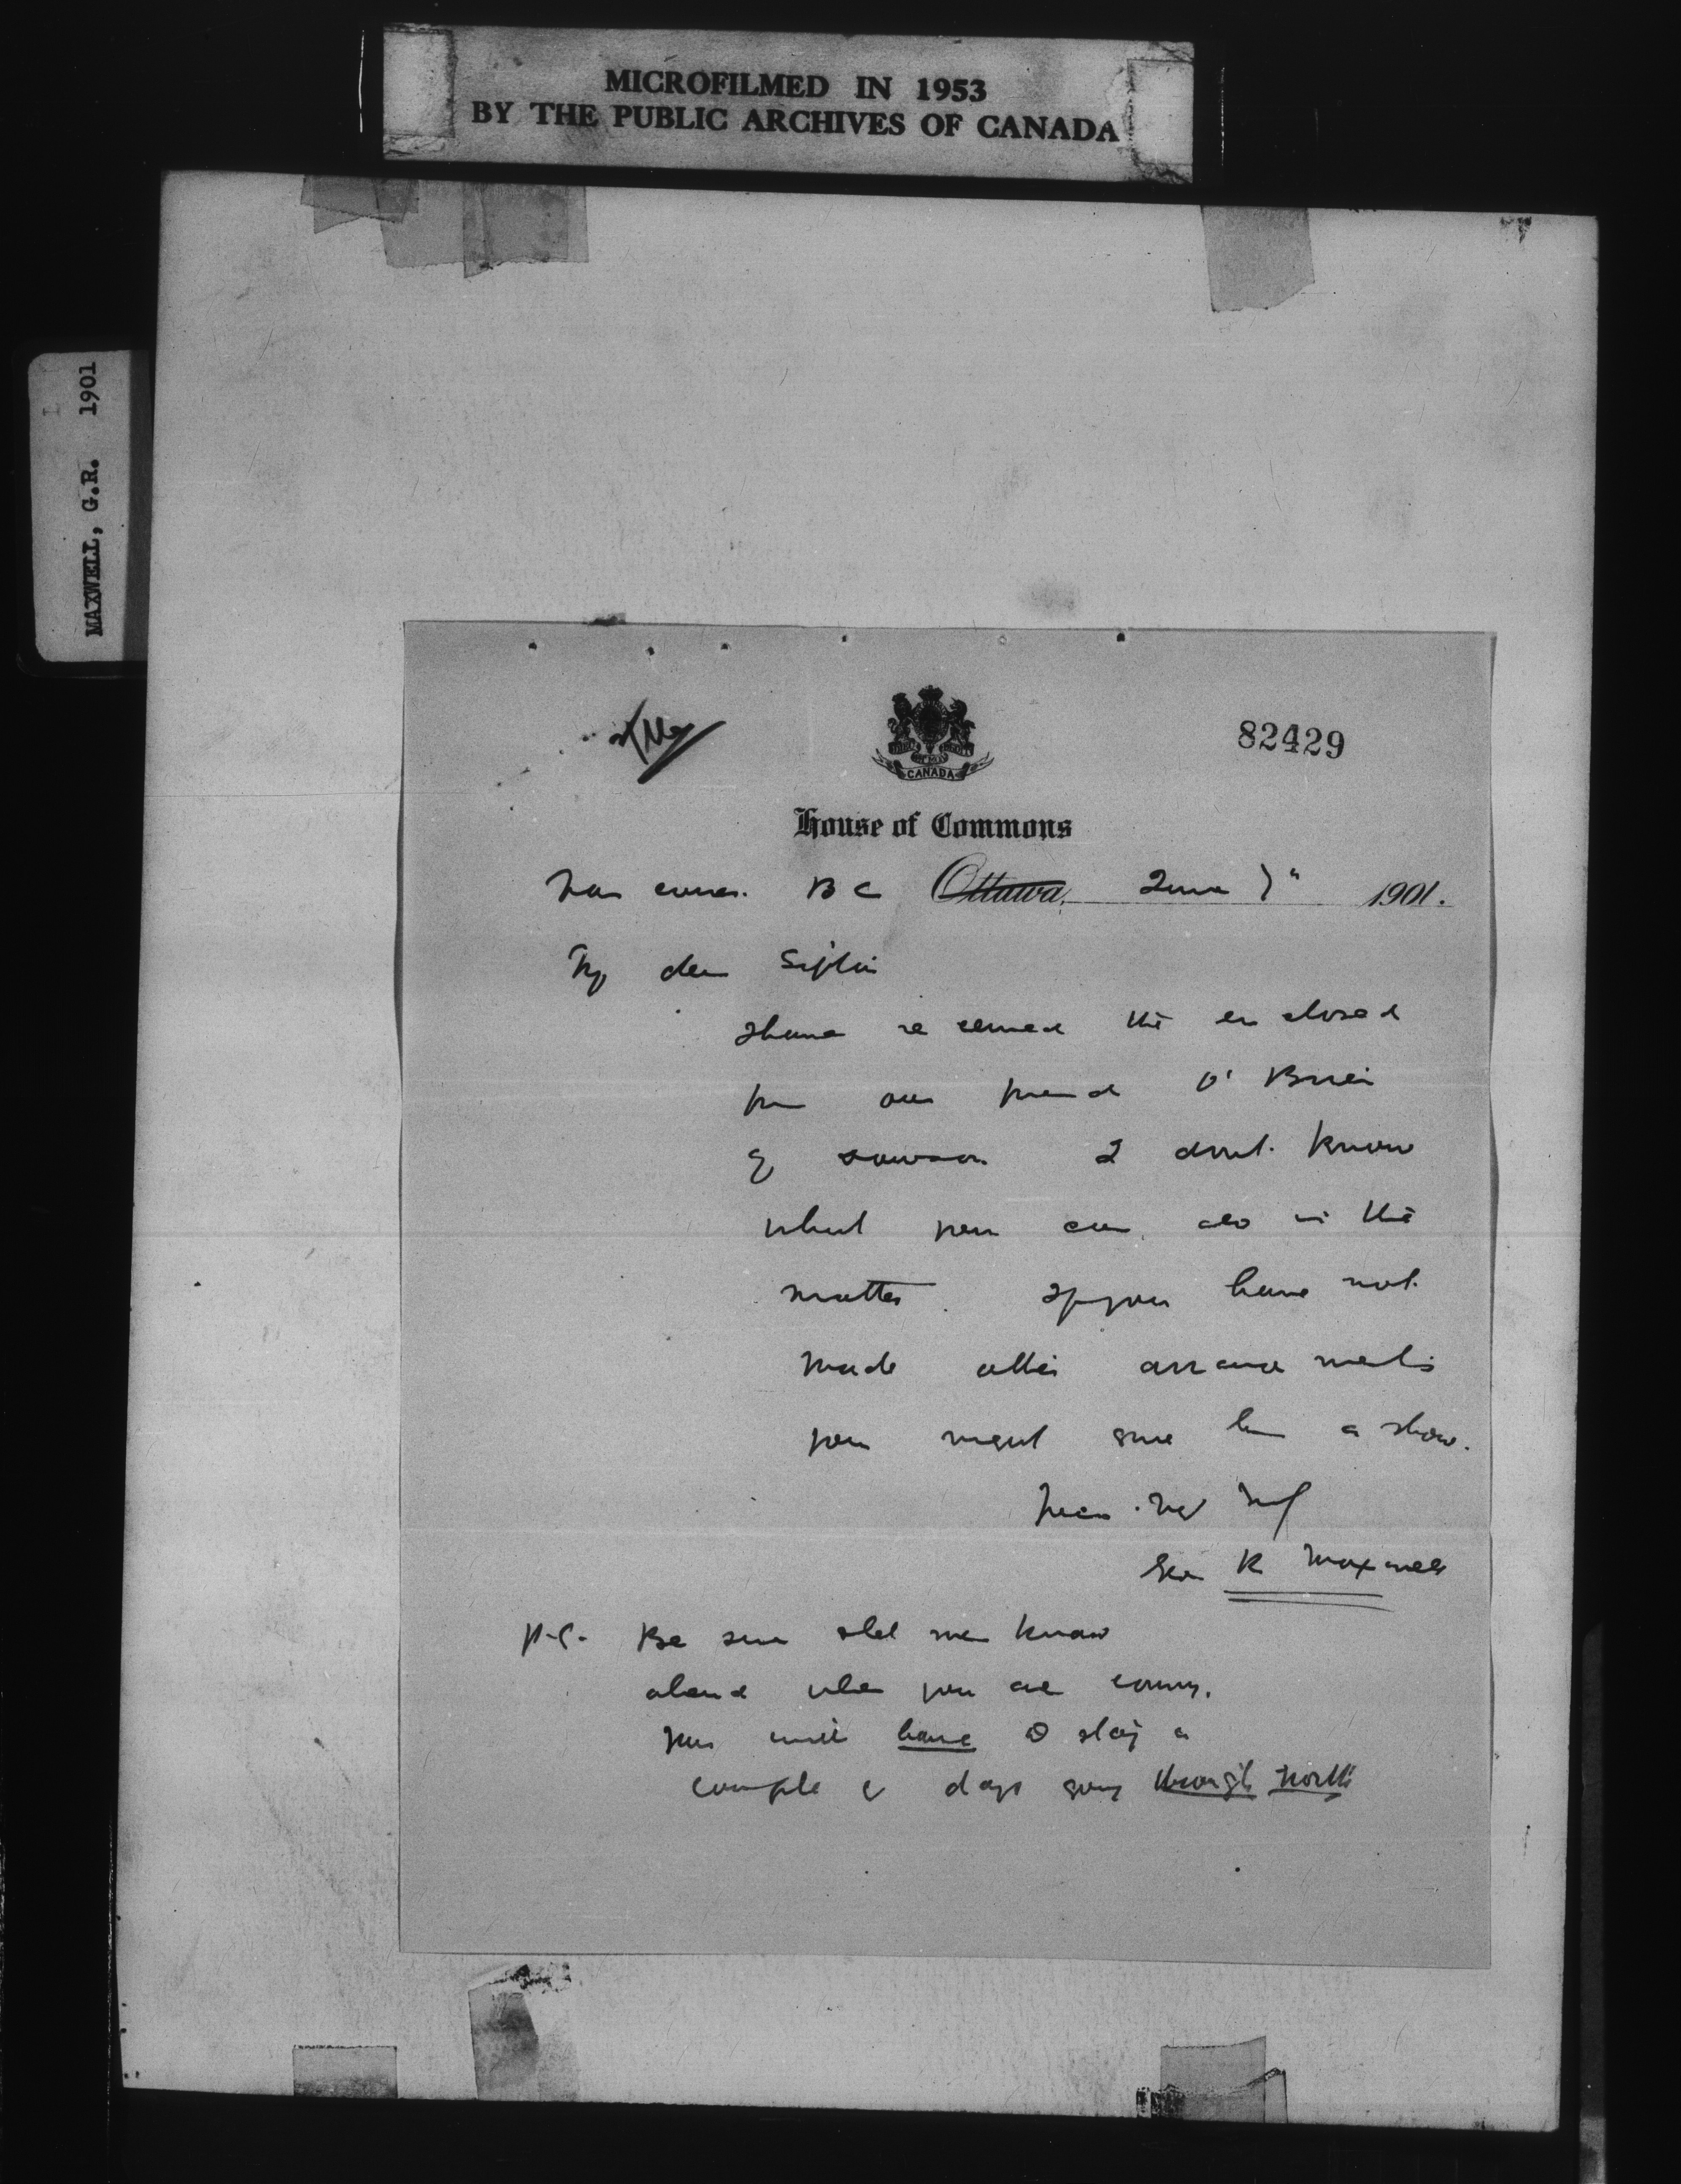 MICROFILMED IN 1953
BY THE PUBLIC ARCHIVES OF CANADA
MAXWELL, G.R. 1901
82429
CANADA
House of Commons
Vancouver. B C Ottawa, June 7" 1901.
My dear Sifton
I have received the enclosed
from our friend O'Brien
of Dawson I don't know
what you can do in the
matter. If you have not
made other arrangements
you might give him a show.
Geo R Maxwell
P.S. Be sure & let me know
when you are coming.
You will have to stay a
couple of days going through North